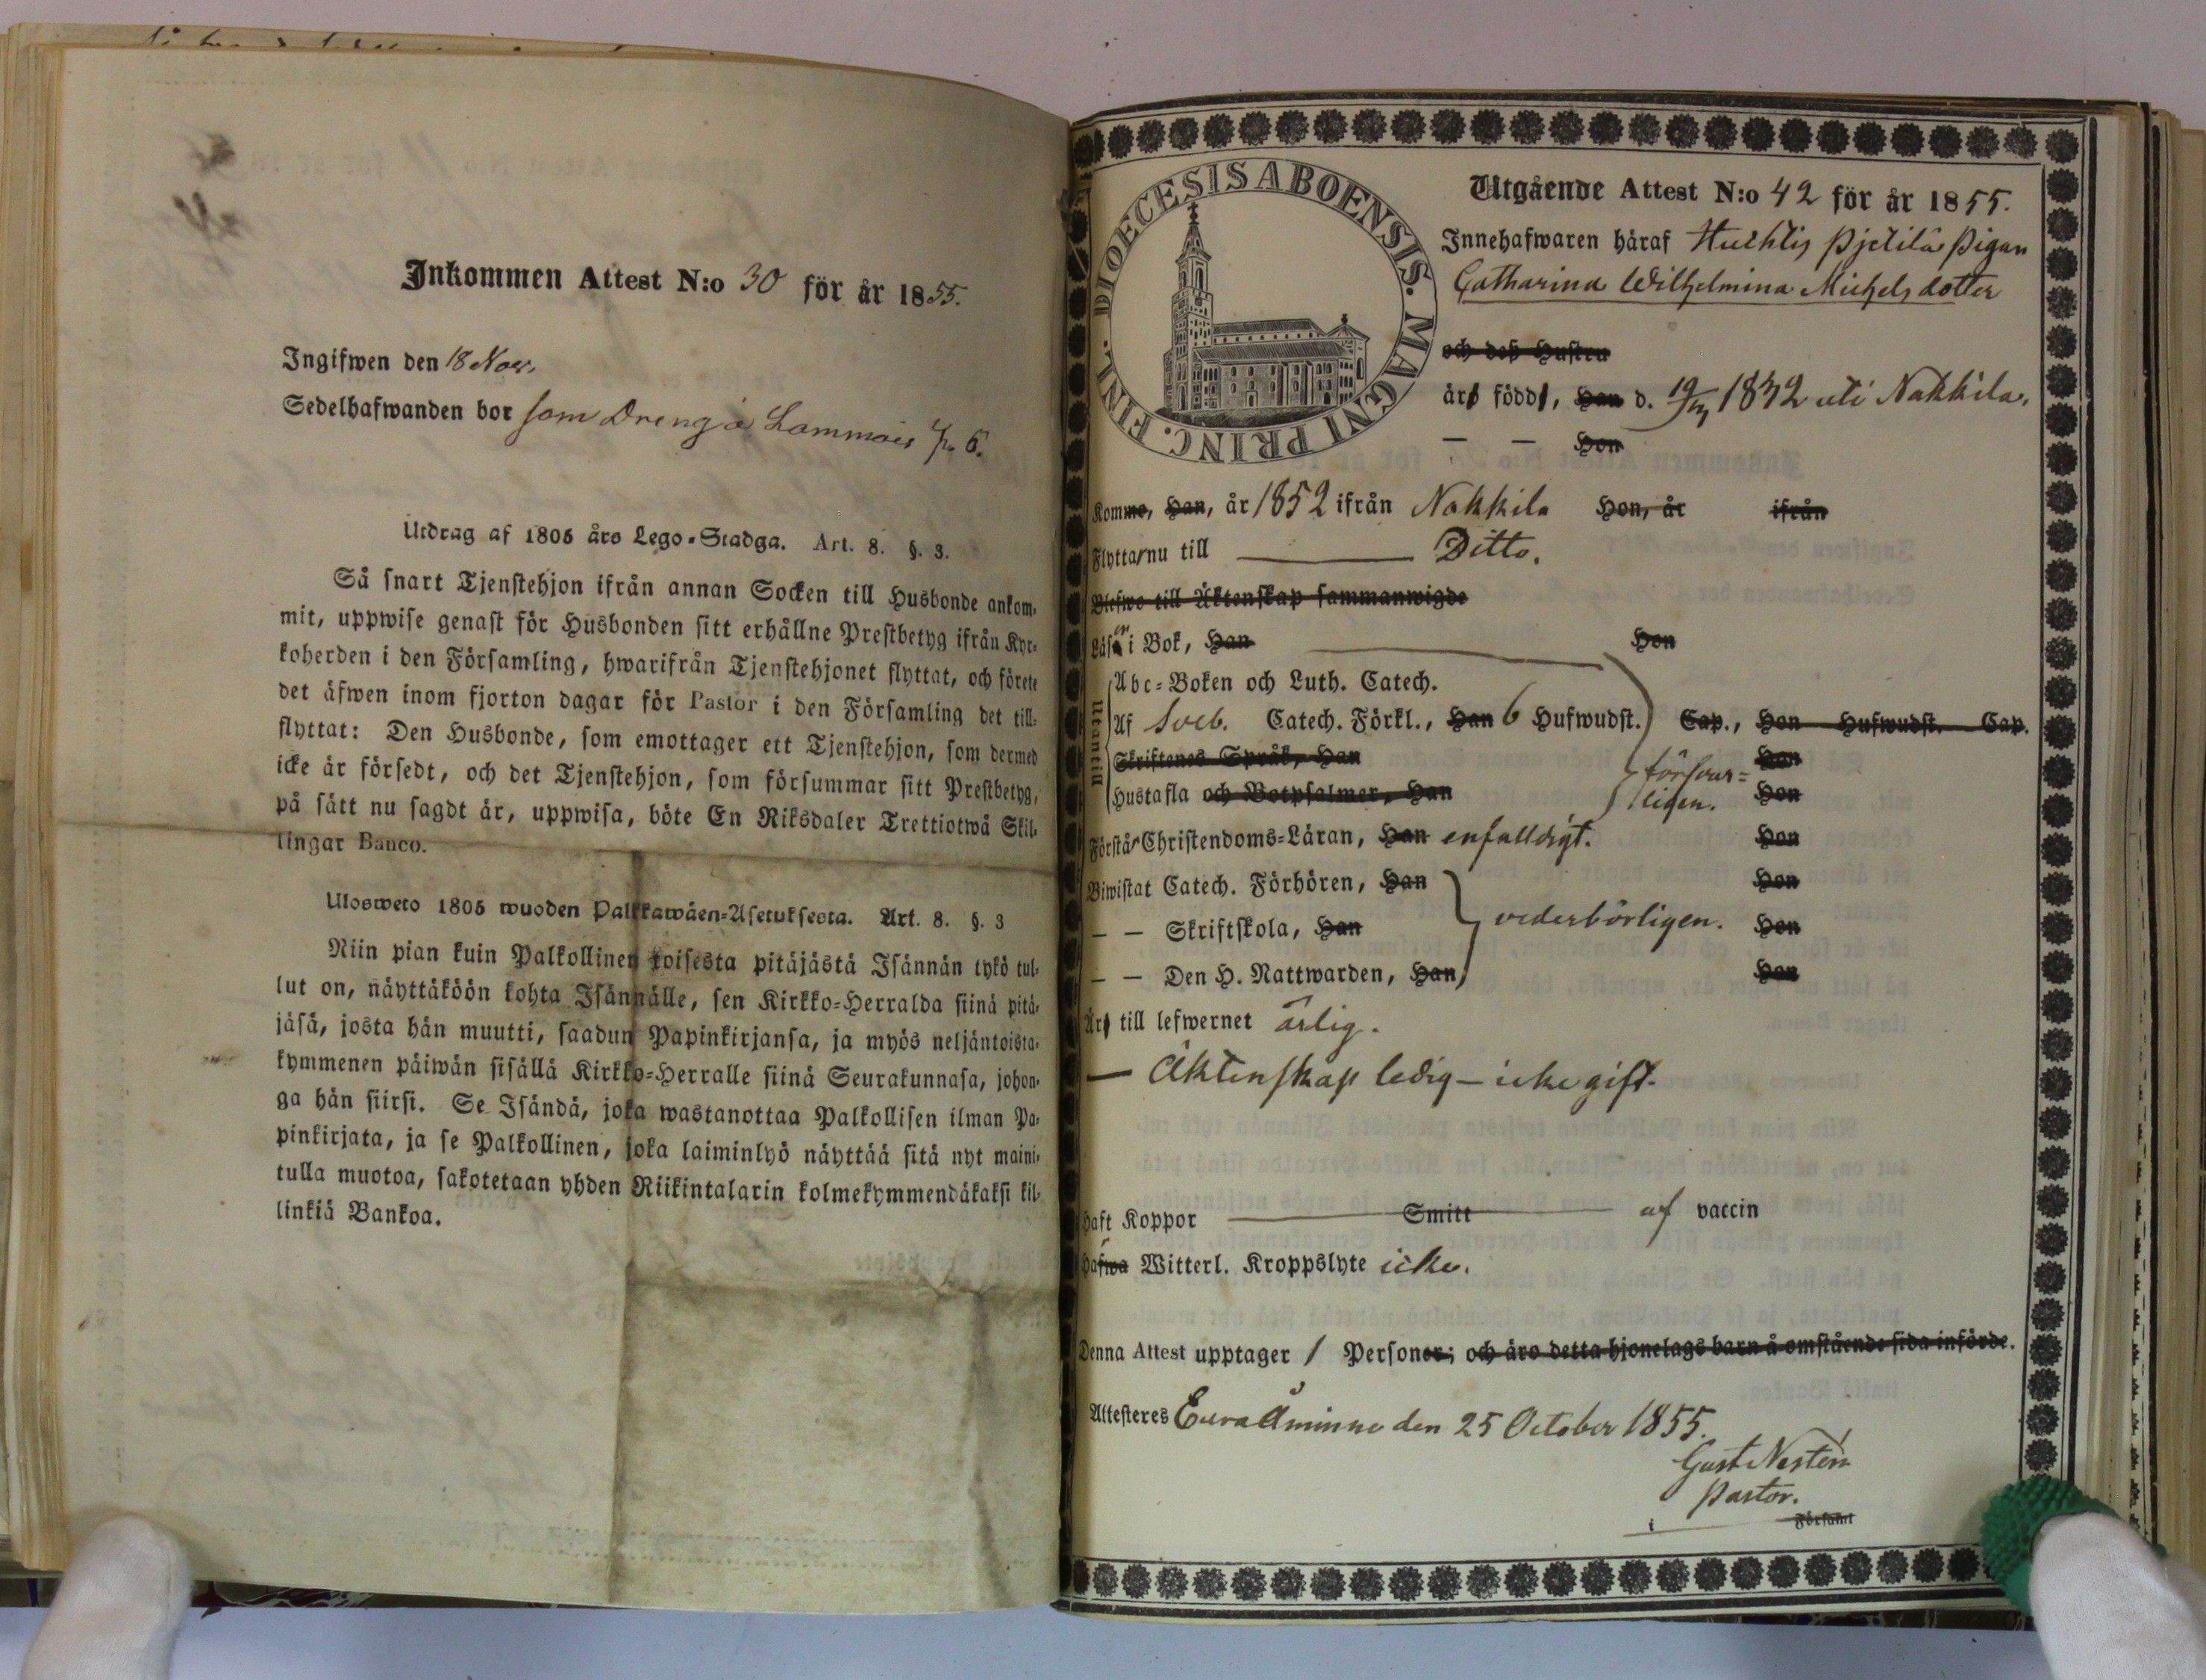 Inkommen Attest N:o 30 för år 1855.
Ingifwen den 18 Nov.
Sedelhafwanden bor som Dreng å Lammais p. 6.
Utdrag af 1805 års Lego-Stadga. Art. 8. §. 3.
Så snart Tjenstehjon ifrån annan Socken till Husbonde ankom-
mit, uppwise genast för Husbonden sitt erhållne Prestbetyg ifrån Kyr-
koherden i den Församling, hwarifrån Tjenstehjonet flyttat, och förete
det äfwen inom fjorton dagar för Pastor i den Församling det till-
flyttat: Den Husbonde, som emottager ett Tjenstehjon, som dermed
icke är försedt, och det Tjenstehjon, som försummar sitt Prestbetyg,
på sätt nu sagdt är, uppwisa, böte En Riksdaler Trettiotwå Skil-
lingar Banco.
Ulosweto 1805 wuoden Palkkawäen-Asetuksesta. Art. 8. §. 3
Niin pian kuin Palkollinen toisesta pitäjästä Isännän tykö tul-
lut on, näyttäköön kohta Isännälle, sen Kirkko-Herralda siinä pitä-
jäsä, josta hän muutti, saadun Papinkirjansa, ja myös neljäntoista-
kymmenen päiwän sisällä Kirkko-Herralle siinä Seurakunnasa, johon-
ga hän siirsi. Se Isändä, joka wastanottaa Palkollisen ilman Pa-
pinkirjata, ja se Palkollinen, joka laiminlyö näyttää sitä nyt maini-
tulla muotoa, sakotetaan yhden Riikintalarin kolmekymmendäkaksi kil-
linkiä Bankoa.
DIOECESIS ABOENSIS. MAGNI PRINC. FINL.
Utgående Attest N:o 42 för år 1855.
Innehafwaren häraf Huchtis Pjetilä Pigan
Catharina Wilhelmina Michelsdotter
och deß Hustru
är född, Han d. 1832 uti Nakkila.
— — Hon
Komme, Han, år 1852 ifrån Nakkila Hon, år ifrån
Flytta nu till Ditto.
Blefwo till Äktenskap sammanwigde
Läser i Bok, Han Hon
Utantill
Abc-Boken och Luth. Catech.
Af Sveb. Catech. Förkl., Han 6 Hufwudst. Cap., Hon Hufwudst. Cap.
Skriftenes Språk, Han Hon
Hustafla och Botpsalmer, Han försvarligen. Hon
Förstår Christendoms-Läran, Han enfalldigt. Hon
Biwistat Catech. Förhören, Han Hon
— — Skriftskola, Han vederbörligen. Hon
— — Den H. Nattwarden, Han Hon
Är till lefwernet ärlig.
— Äktenskap ledig — icke gift.
Haft Koppor Smitt af vaccin
Hafwa Witterl. Kroppslyte icke.
Denna Attest upptager 1 Personer; och äro detta hjonelags barn å omstående sida införde.
Attesteres Eura Åminne den 25 October 1855.
Gust Nestén
Pastor.
i Församl